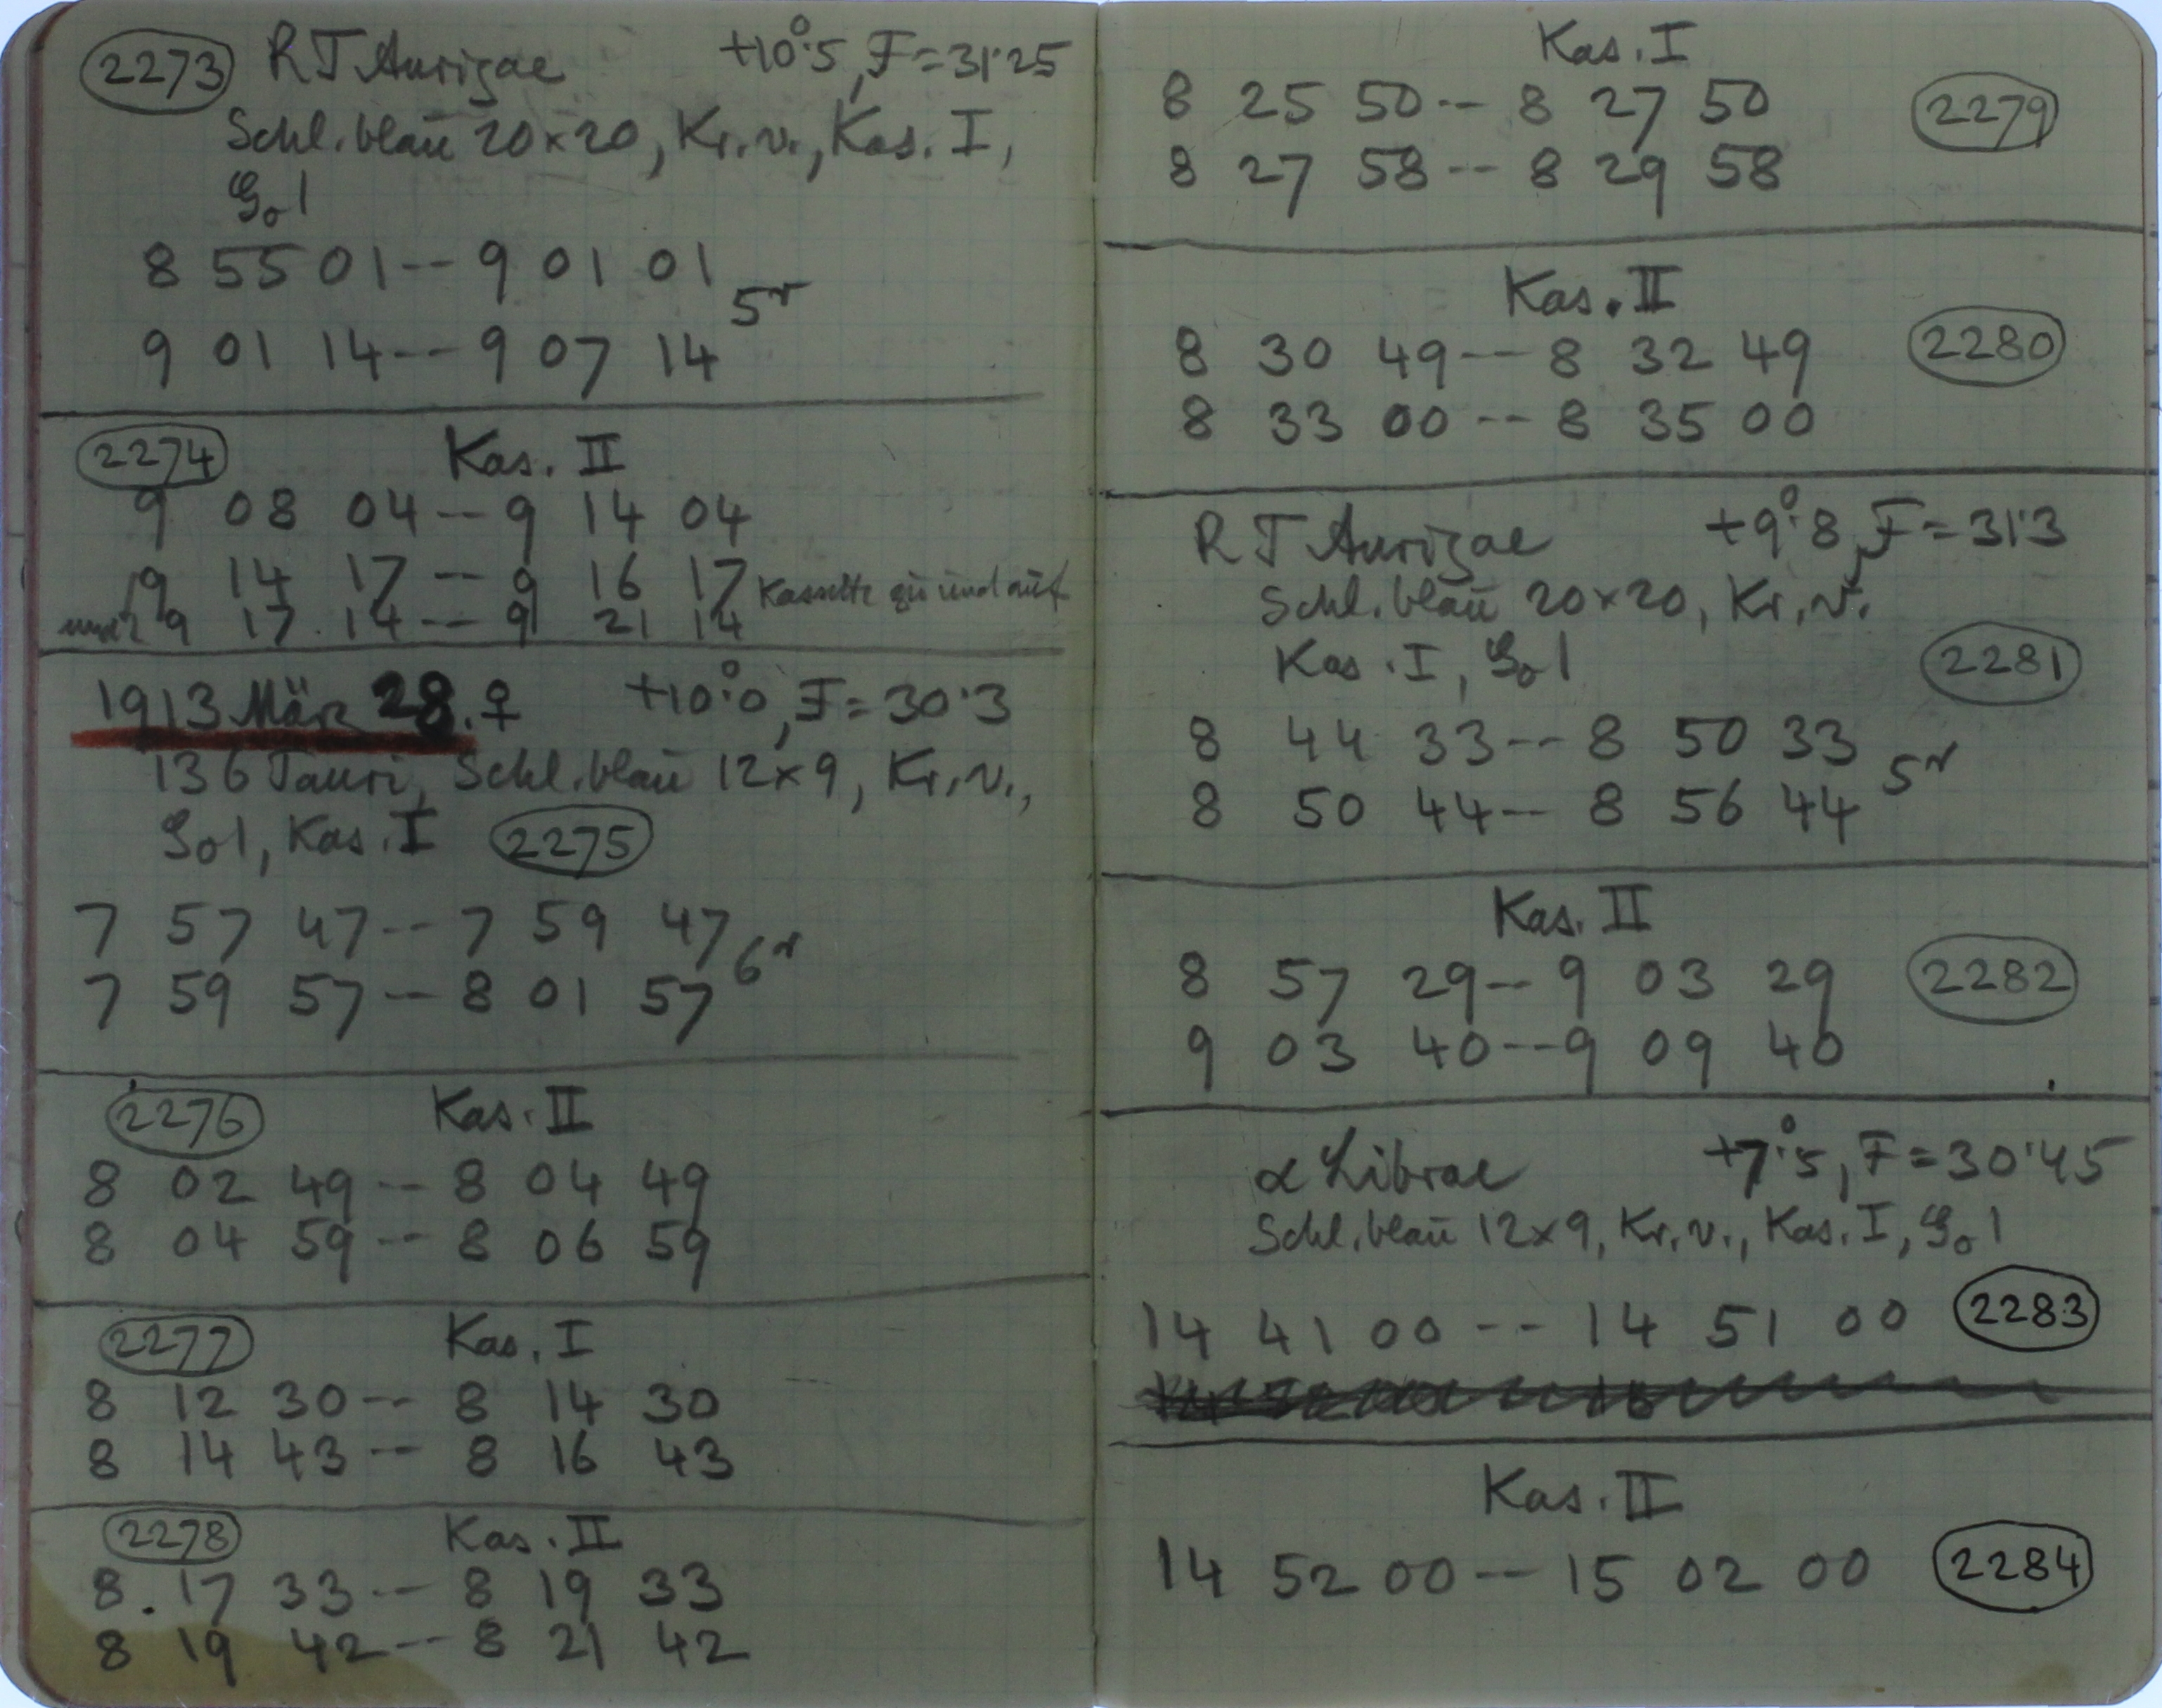 2273 RT Aurigae +10°.5, F=31.25
Schl. blau 20×20, Kr. v., Kas. I,
Go 1
8 55 01 -- 9 01 01
5r
9 01 14 -- 9 07 14
2274 Kas. II
9 08 04 -- 9 14 04
9 14 17 -- 9 16 17 Kassette zu und auf
und 9 17 14 -- 9 21 14
1913 März 28. ♀ +10°.0, F=30.3
136 Tauri, Schl. blau 12×9, Kr. v.,
Go 1, Kas. I 2275
7 57 47 -- 7 59 47
6r
7 59 57 -- 8 01 57
2276 Kas. II
8 02 49 -- 8 04 49
8 04 59 -- 8 06 59
2277 Kas. I
8 12 30 -- 8 14 30
8 14 43 -- 8 16 43
2278 Kas. II
8 17 33 -- 8 19 33
8 19 42 -- 8 21 42
Kas. I
8 25 50 -- 8 27 50 2279
8 27 58 -- 8 29 58
Kas. II
8 30 49 -- 8 32 49 2280
8 33 00 -- 8 35 00
RT Aurigae +9°.8, F=31.3
Schl. blau 20×20, Kr. v.
Kas. I, Go 1 2281
8 44 33 -- 8 50 33
5r
8 50 44 -- 8 56 44
Kas. II
8 57 29 -- 9 03 29 2282
9 03 40 -- 9 09 40
α Librae +7°.5, F=30.45
Schl. blau 12×9, Kr. v., Kas. I, Go 1
14 41 00 -- 14 51 00 2283
Kas. II
14 52 00 -- 15 02 00 2284